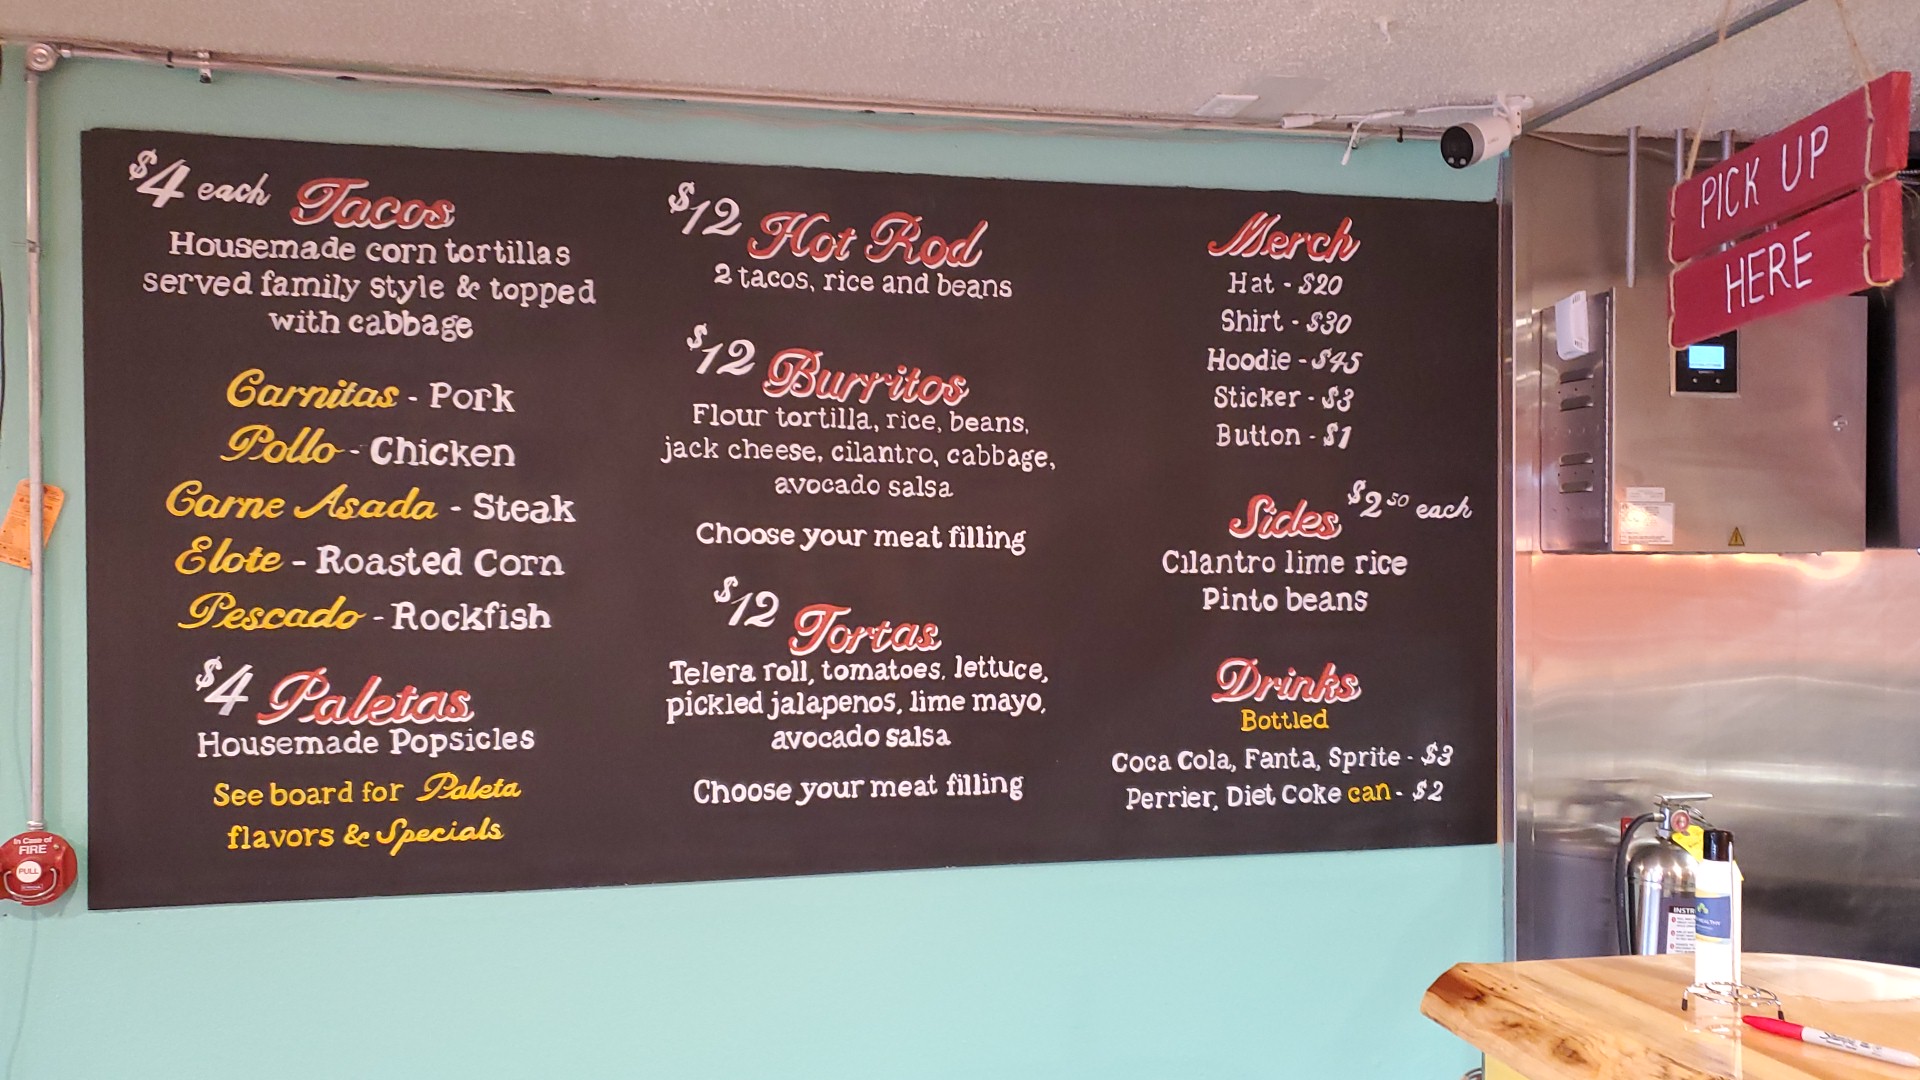 $4 each Tacos
Housemade corn tortillas
served family style & topped
with cabbage
Carnitas - Pork
Pollo - Chicken
Carne Asada - Steak
Elote - Roasted Corn
Pescado - Rockfish
$4 Paletas
Housemade Popsicles
See board for Paleta
flavors & Specials
$12 Hot Rod
2 tacos, rice and beans
$12 Burritos
Flour tortilla, rice, beans,
jack cheese, cilantro, cabbage,
avocado salsa
Choose your meat filling
$12 Tortas
Telera roll, tomatoes, lettuce,
pickled jalapenos, lime mayo,
avocado salsa
Choose your meat filling
Merch
Hat - $20
Shirt - $30
Hoodie - $45
Sticker - $3
Button - $1
Sides $2 50 each
Cilantro lime rice
Pinto beans
Drinks
Bottled
Coca Cola, Fanta, Sprite - $3
Perrier, Diet Coke can - $2
PICK UP
HERE
In Case of
FIRE
PULL